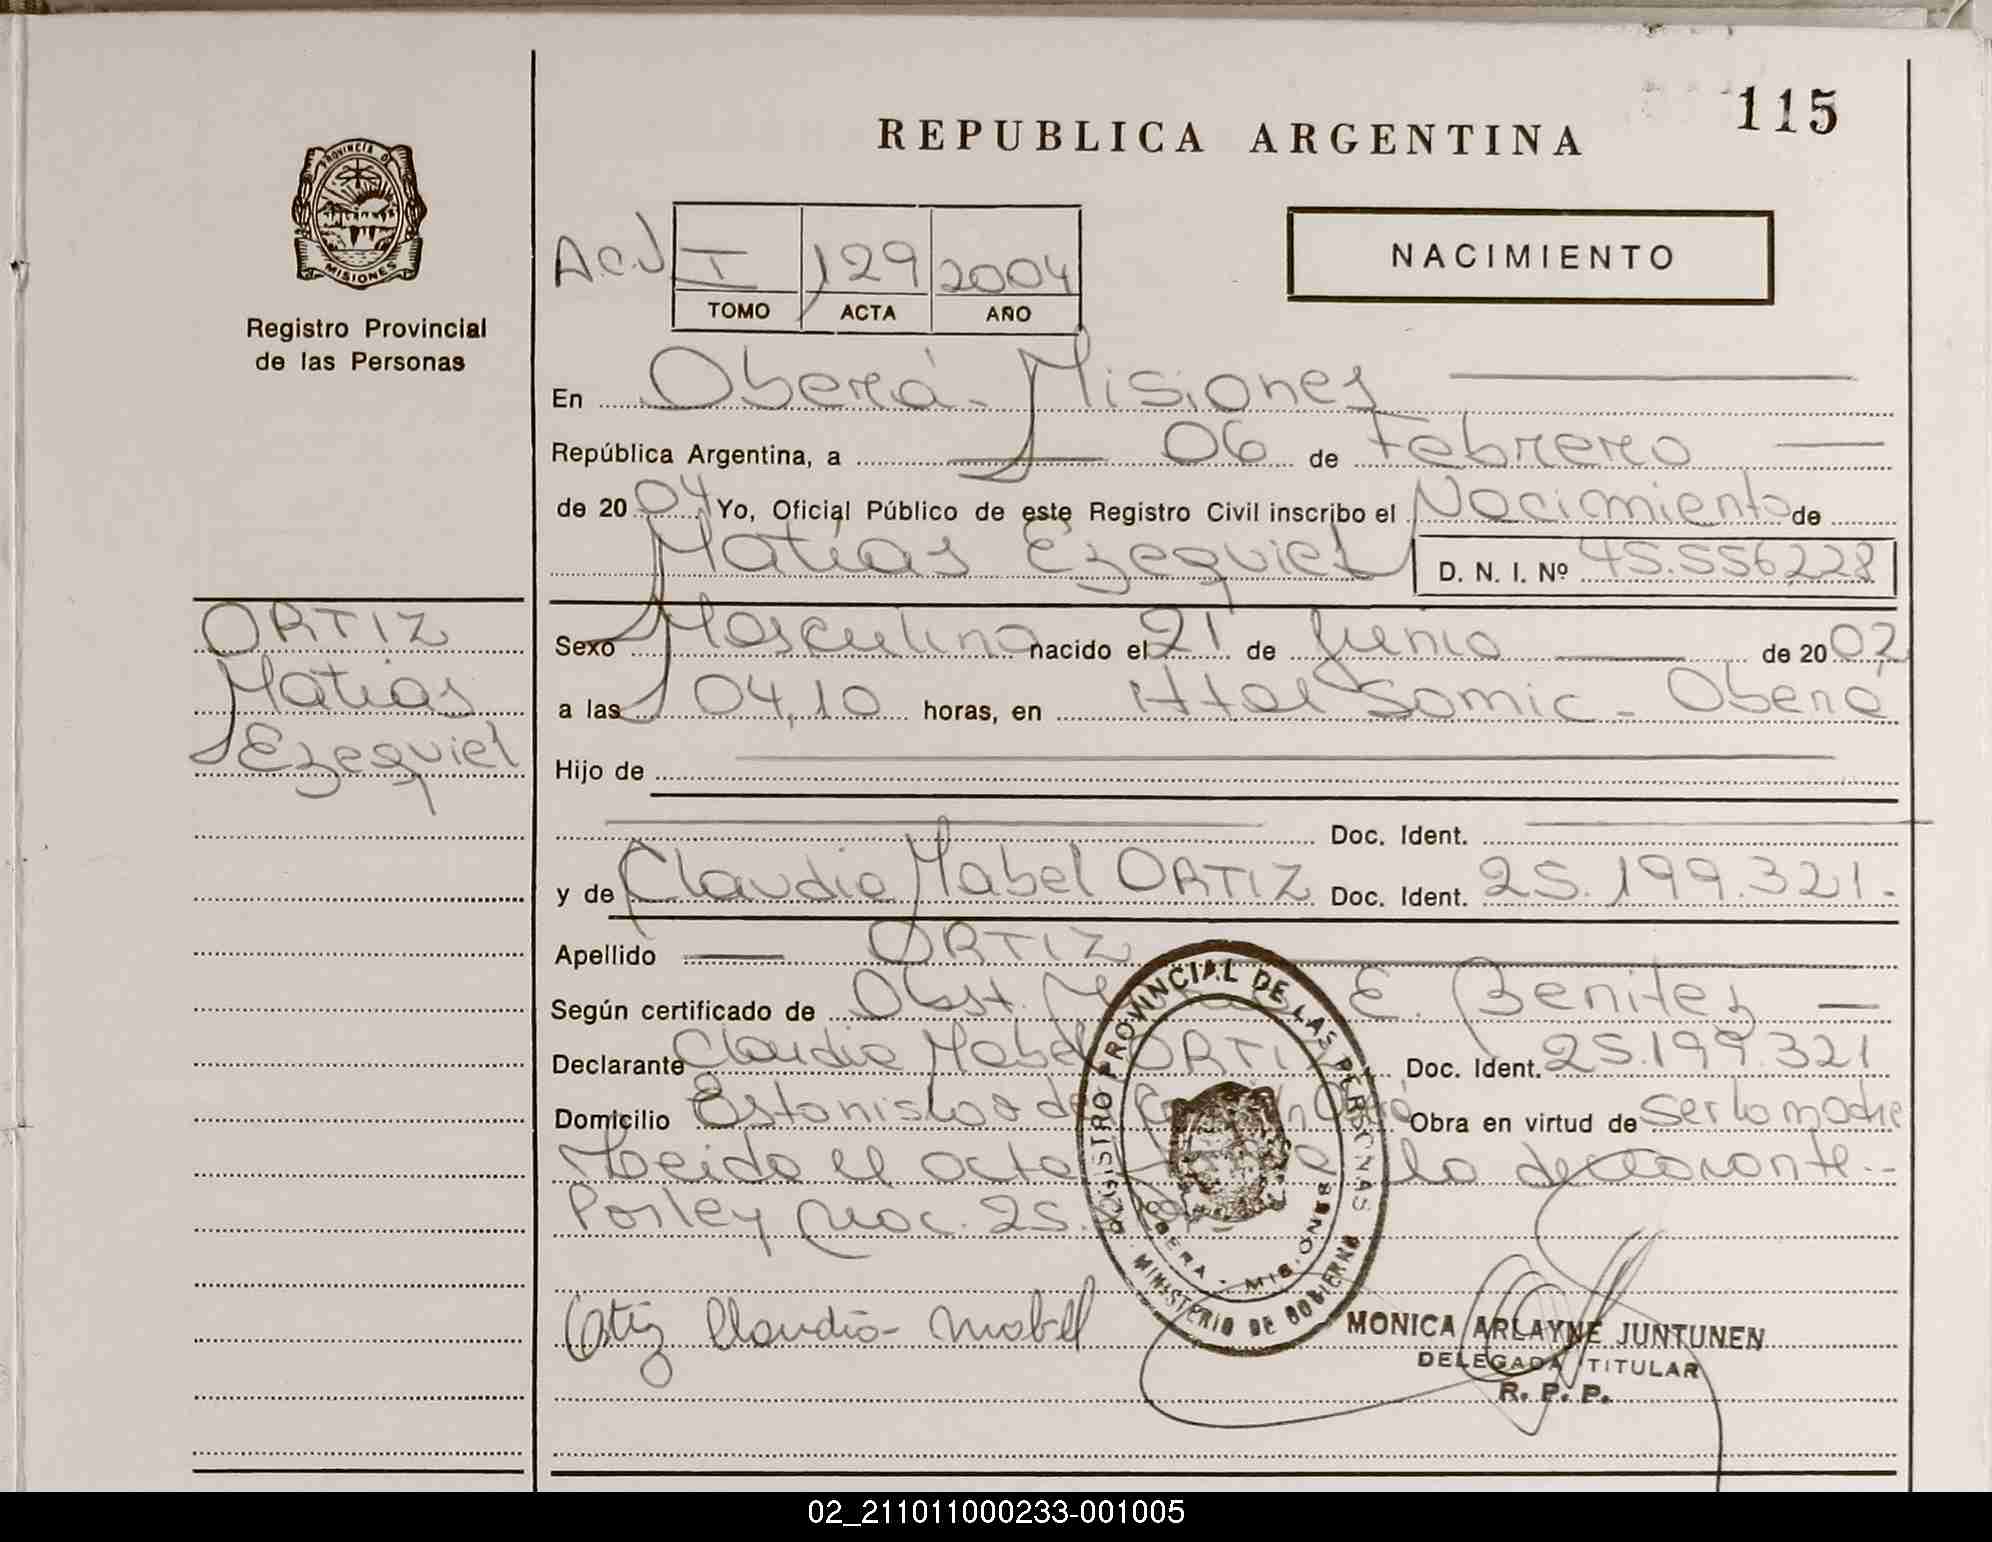 115
REPUBLICA ARGENTINA
PROVINCIA DE
MISIONES
Registro Provincial
de las Personas
NACIMIENTO
I 129 2004
TOMO ACTA AÑO
En Oberá - Misiones
República Argentina, a 06 de Febrero
de 20 04 Yo, Oficial Público de este Registro Civil inscribo el Nacimiento de
Matías Ezequiel D. N. I. Nº 45.556228
ORTIZ
Matias
Ezequiel
Sexo Masculino nacido el 21 de Junio de 20 02
a las 04,10 horas, en Htal Samic - Oberá
Hijo de
Doc. Ident.
y de Claudia Mabel ORTIZ Doc. Ident. 25.199.321.
Apellido ORTIZ
Según certificado de Obst. E. Benitez
Declarante Claudia Mabel ORTIZ Doc. Ident. 25.199.321
Domicilio Estanislao de Obra en virtud de ser la madre
Leida el acta la declarante.-
Por ley 25.
Ortiz Claudia Mabel
REGISTRO PROVINCIAL DE LAS PERSONAS
MINISTERIO DE GOBIERNO
OBERA - MISIONES
MONICA ARLAYNE JUNTUNEN
DELEGADA TITULAR
R. P. P.
02_211011000233-001005